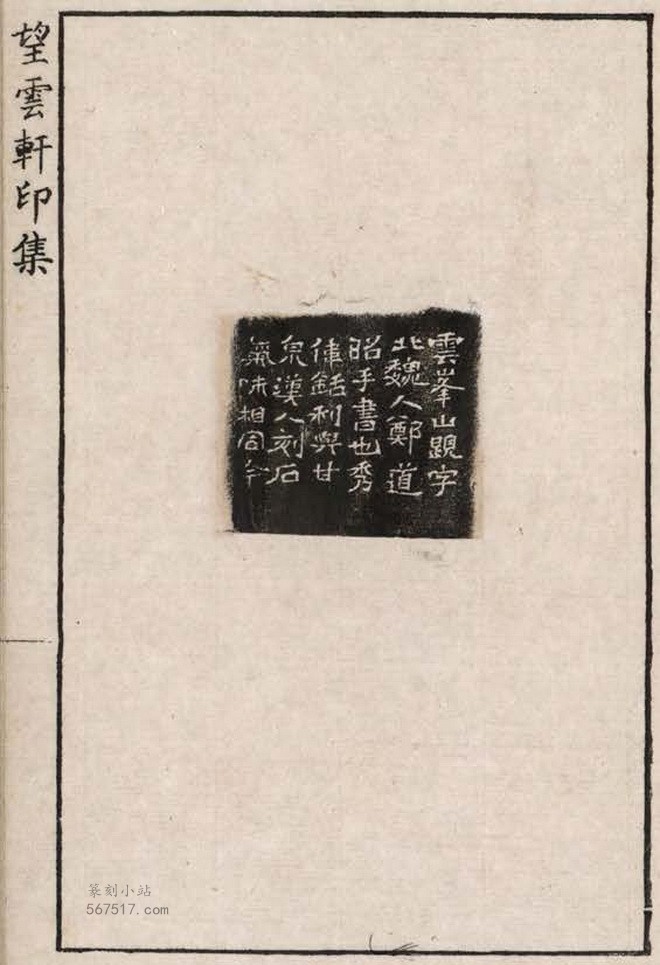 望雲軒印集
雲峯山題字
北魏人鄭道
昭手書也秀
律銛利與甘
泉漢人刻石
氣味相同年
篆刻小站
567517.com